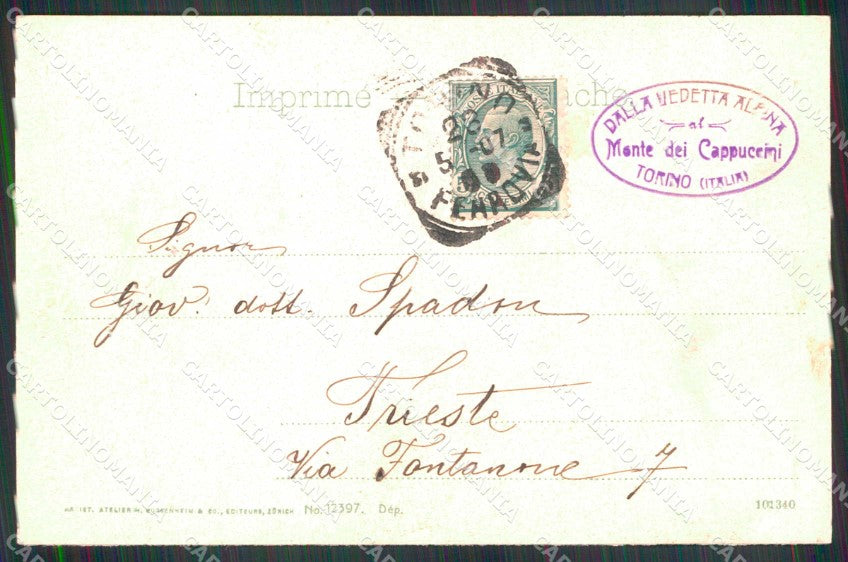 Imprimé
TORINO
23
5-07
FERROVIA
DALLA VEDETTA ALPINA
al
Monte dei Cappuccini
TORINO (ITALIA)
Signor
Giov. dott. Spadon
Trieste
Via Fontanone 7
ATELIER H. GUGGENHEIM & CO., EDITEURS, ZÜRICH No. 12397. Dép.
101340
CARTOLINOMANIA